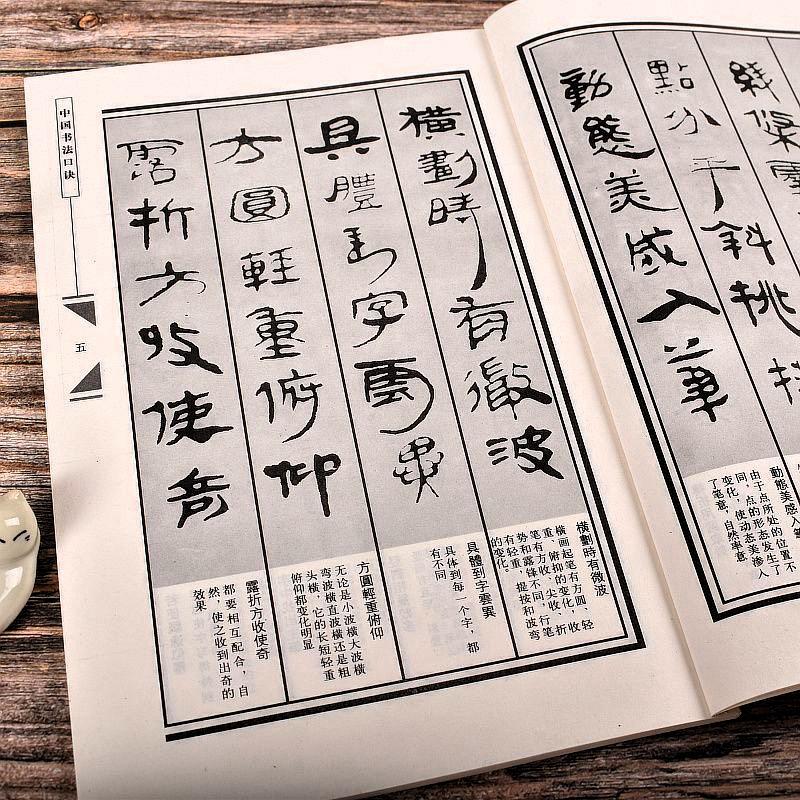 綫條
點
于斜挑
動態美感入筆
動態美感入筆
由于点所处的位置不
同，点的形态发生了
变化，使动态美渗入
了笔意，自然率意
橫劃時有微波
具體到字雲異
方圓輕重俯仰
露折方收使奇
橫劃時有微波
橫画起笔有方圆、轻
重、俯仰的变化，收
笔有方收、尖收、折
势和露锋不同，行笔
有轻重、提按和波弯
的变化。
具體到字雲異
具体到每一个字，都
有不同
方圓輕重俯仰
无论是小波横大波横
弯波横直波横还是粗
头横，它的长短轻重
俯仰都变化明显
露折方收使奇
都要相互配合，自
然，使之收到出奇的
效果
中国书法口诀
五